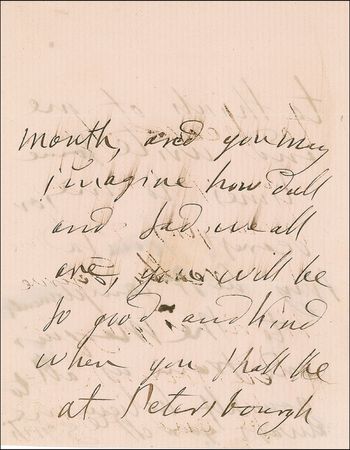 month, and you may
imagine how dull
and sad we all
are, you will be
so good and kind
when you shall be
at Petersbourgh